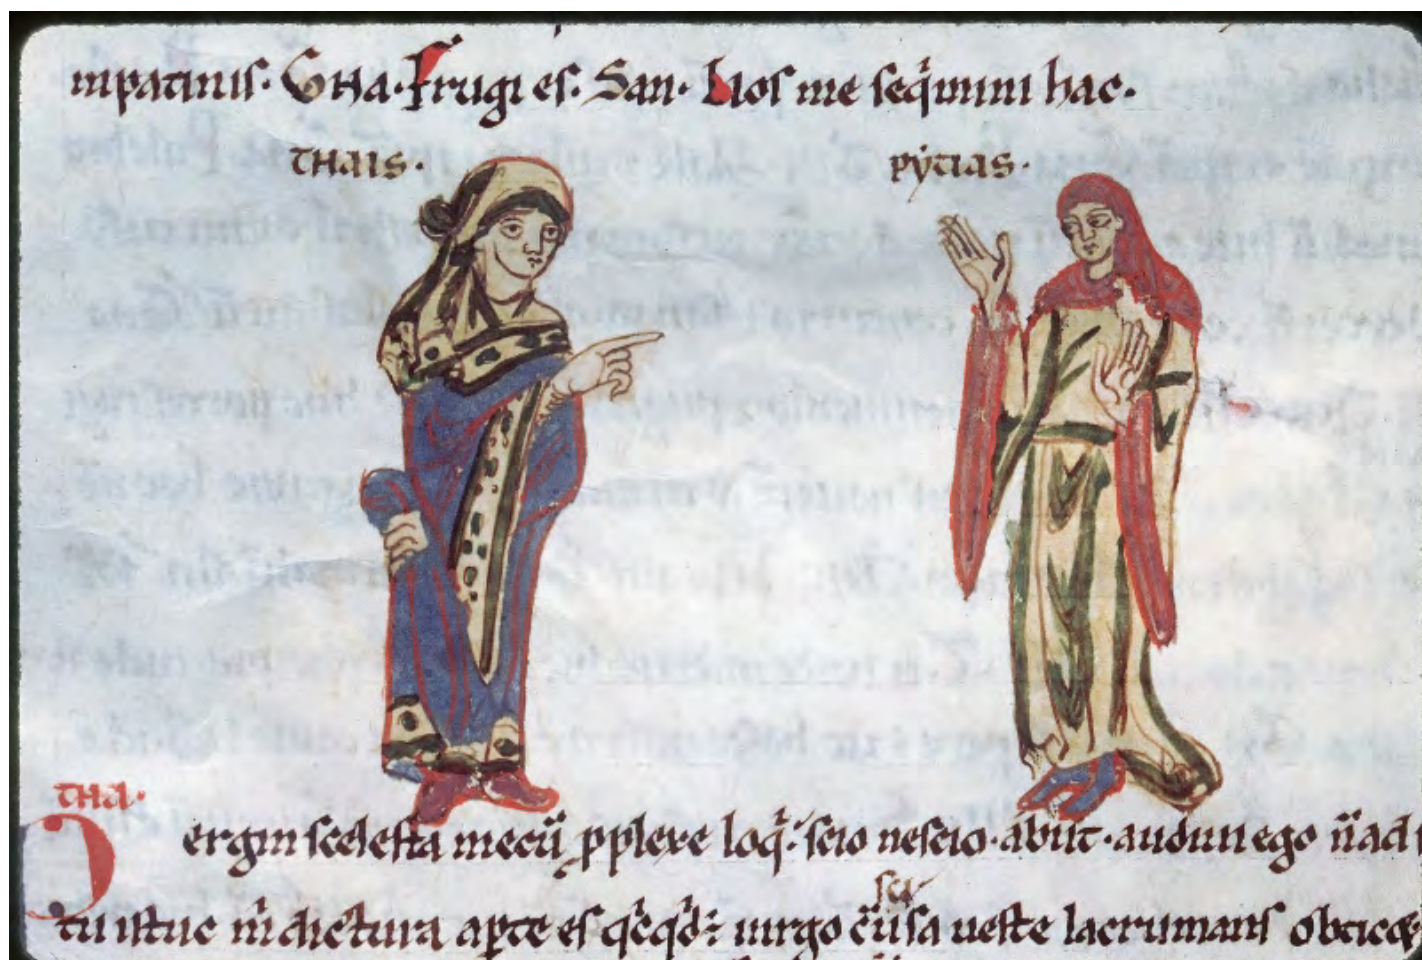 inpatinis· GNa· Frugi es· San· Uos me seq̄mini hac·
THAIS· PYTIAS·
THA·
Pergin scelesta mecū pplexe loq̄· scio nescio· abiit· audiui ego n̄ ad
tu istuc m̄ dictura apte es qcqd: uirgo scissa ueste lacrumans obticet